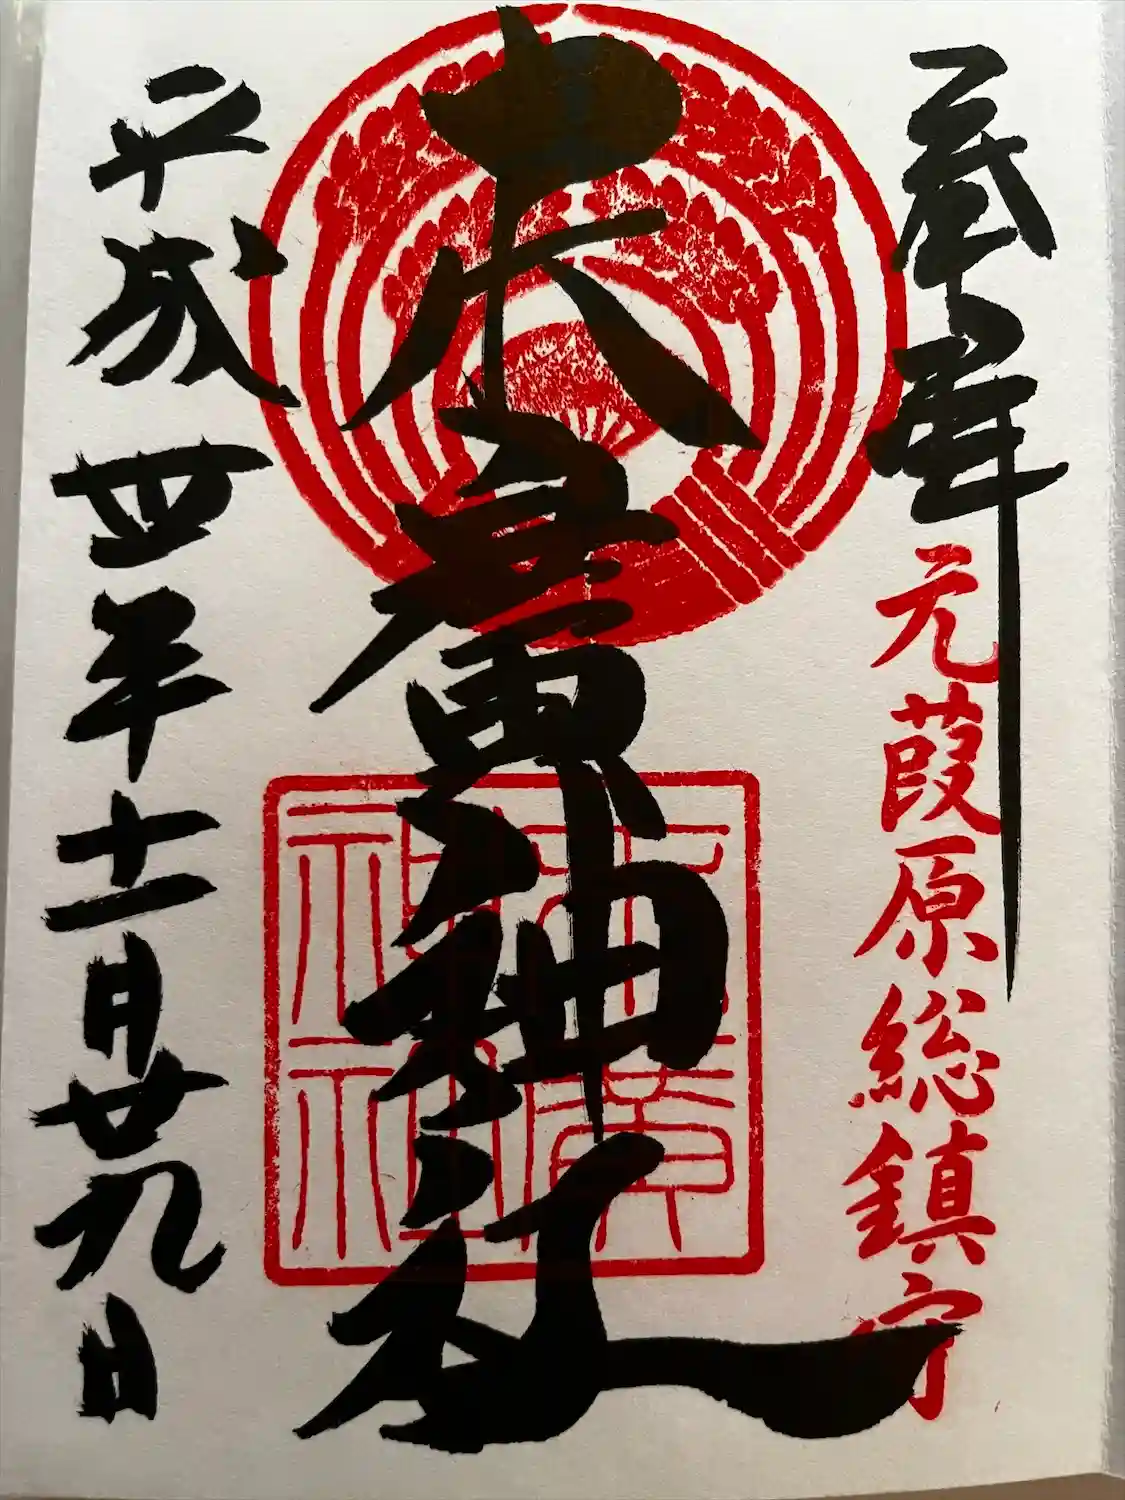 奉拝
元葭原総鎮守
末廣神社
末廣
神社
平成四年十一月廿九日